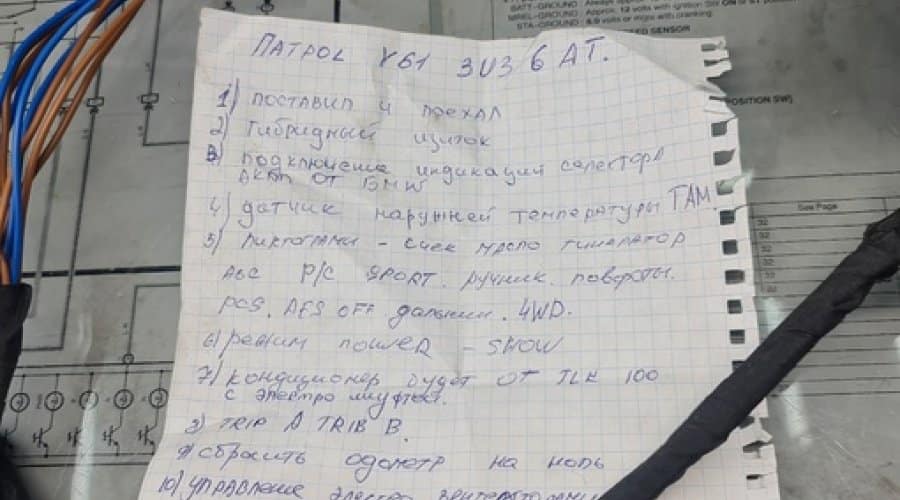 BATT-GROUND: Always approx
MREL-GROUND: Approx. 12 volts with ignition SW ON or ST position
STA-GROUND: 6.0 volts or more with cranking.
ED SENSOR
POSITION SW)
See Page
32
32
32
32
32
ПАТРОL Y61 3U3 6 AT.
1) ПОСТАВИЛ И ПОЕХАЛ
2) Гибридный щиток
3) подключение индикаций селектора
АКПП ОТ BMW
4) датчик наружней температуры ТАМ.
5) Пиктограми - Gчек масло генератор
АБС P/C SPORT. ручник. повороты.
PCS. AFS OFF дальний. 4WD.
6) режим ПОWER - SNOW
7) Кондиционер будет ОТ TLK 100
с электро муфтой.
8) TRIP A TRIB B.
9) сбросить одометр на ноль
10) управление электро вентеляторами